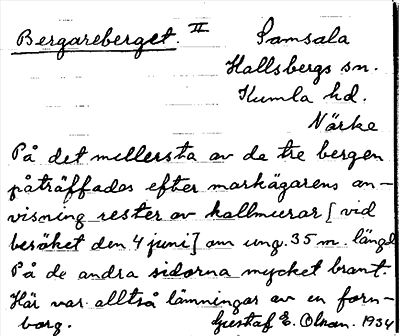 Bergareberget. II
Samsala
Hallsbergs sn.
Kumla hd.
Närke
På det mellersta av de tre bergen
påträffades efter markägarens an-
visning rester av kallmurar [vid
besöket den 4 juni] om ung. 35 m. längd
På de andra sidorna mycket brant.
Här var alltså lämningar av en forn-
borg.
Gustaf E. Olsson. 1934